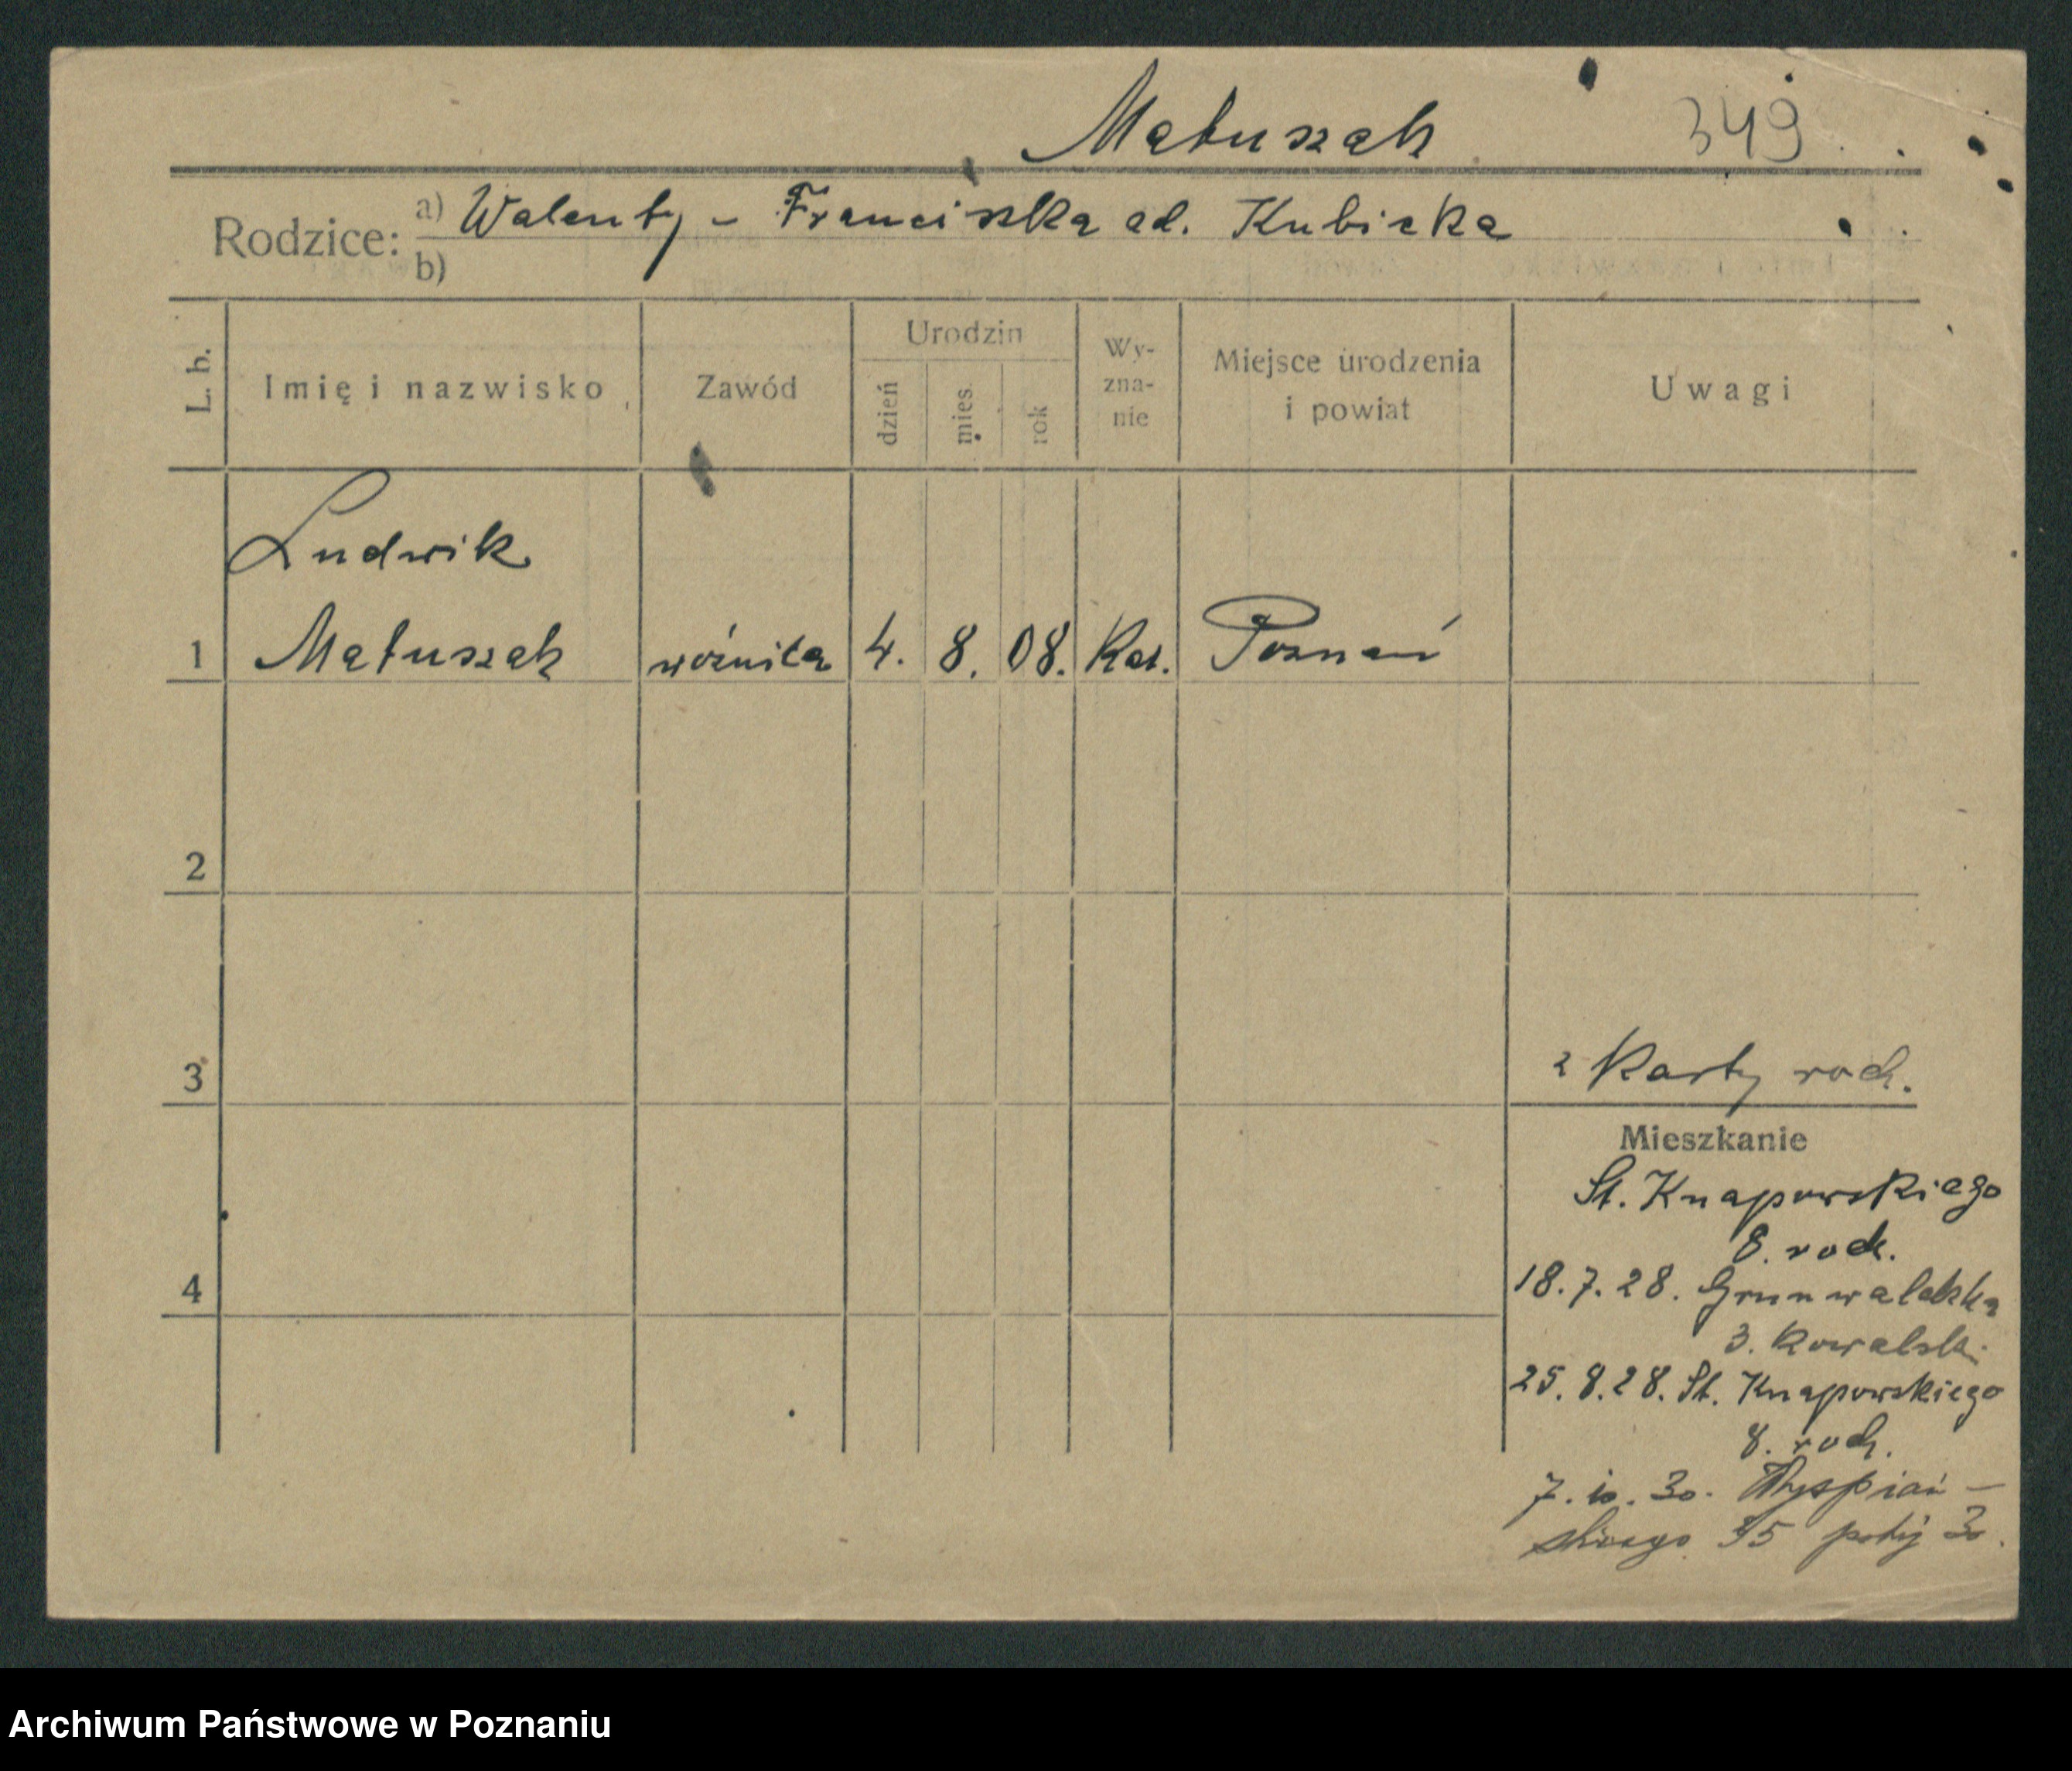 Matuszak 349
Rodzice: a) Walenty - Franciszka ad. Kubicka
b)
L. b. Imię i nazwisko Zawód Urodzin dzień mies. rok Wy-zna-nie Miejsce urodzenia i powiat Uwagi
Ludwik
1 Matuszak woźnica 4. 8. 08. Kat. Poznań
2
3
2 Karty rodz.
Mieszkanie
St. Knapowskiego
8. rodz.
4
18.7.28. Grunwaldzka
3. Kowalski
25.8.28. St. Knapowskiego
8. rodz.
7.10.30. Wyspiań-
skiego 35
Archiwum Państwowe w Poznaniu